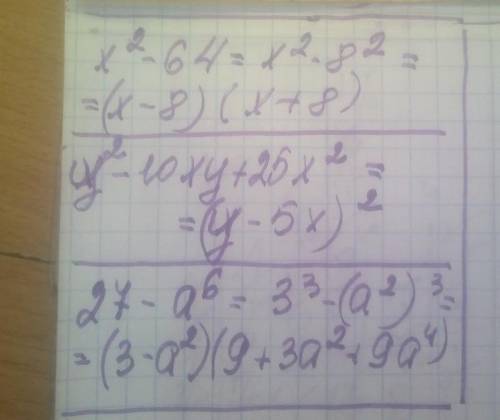 x² - 64 = x² - 8² =
= (x - 8) (x + 8)
y² - 10xy + 25x² =
= (y - 5x)²
27 - a⁶ = 3³ - (a²)³ =
= (3 - a²)(9 + 3a² + 9a⁴)